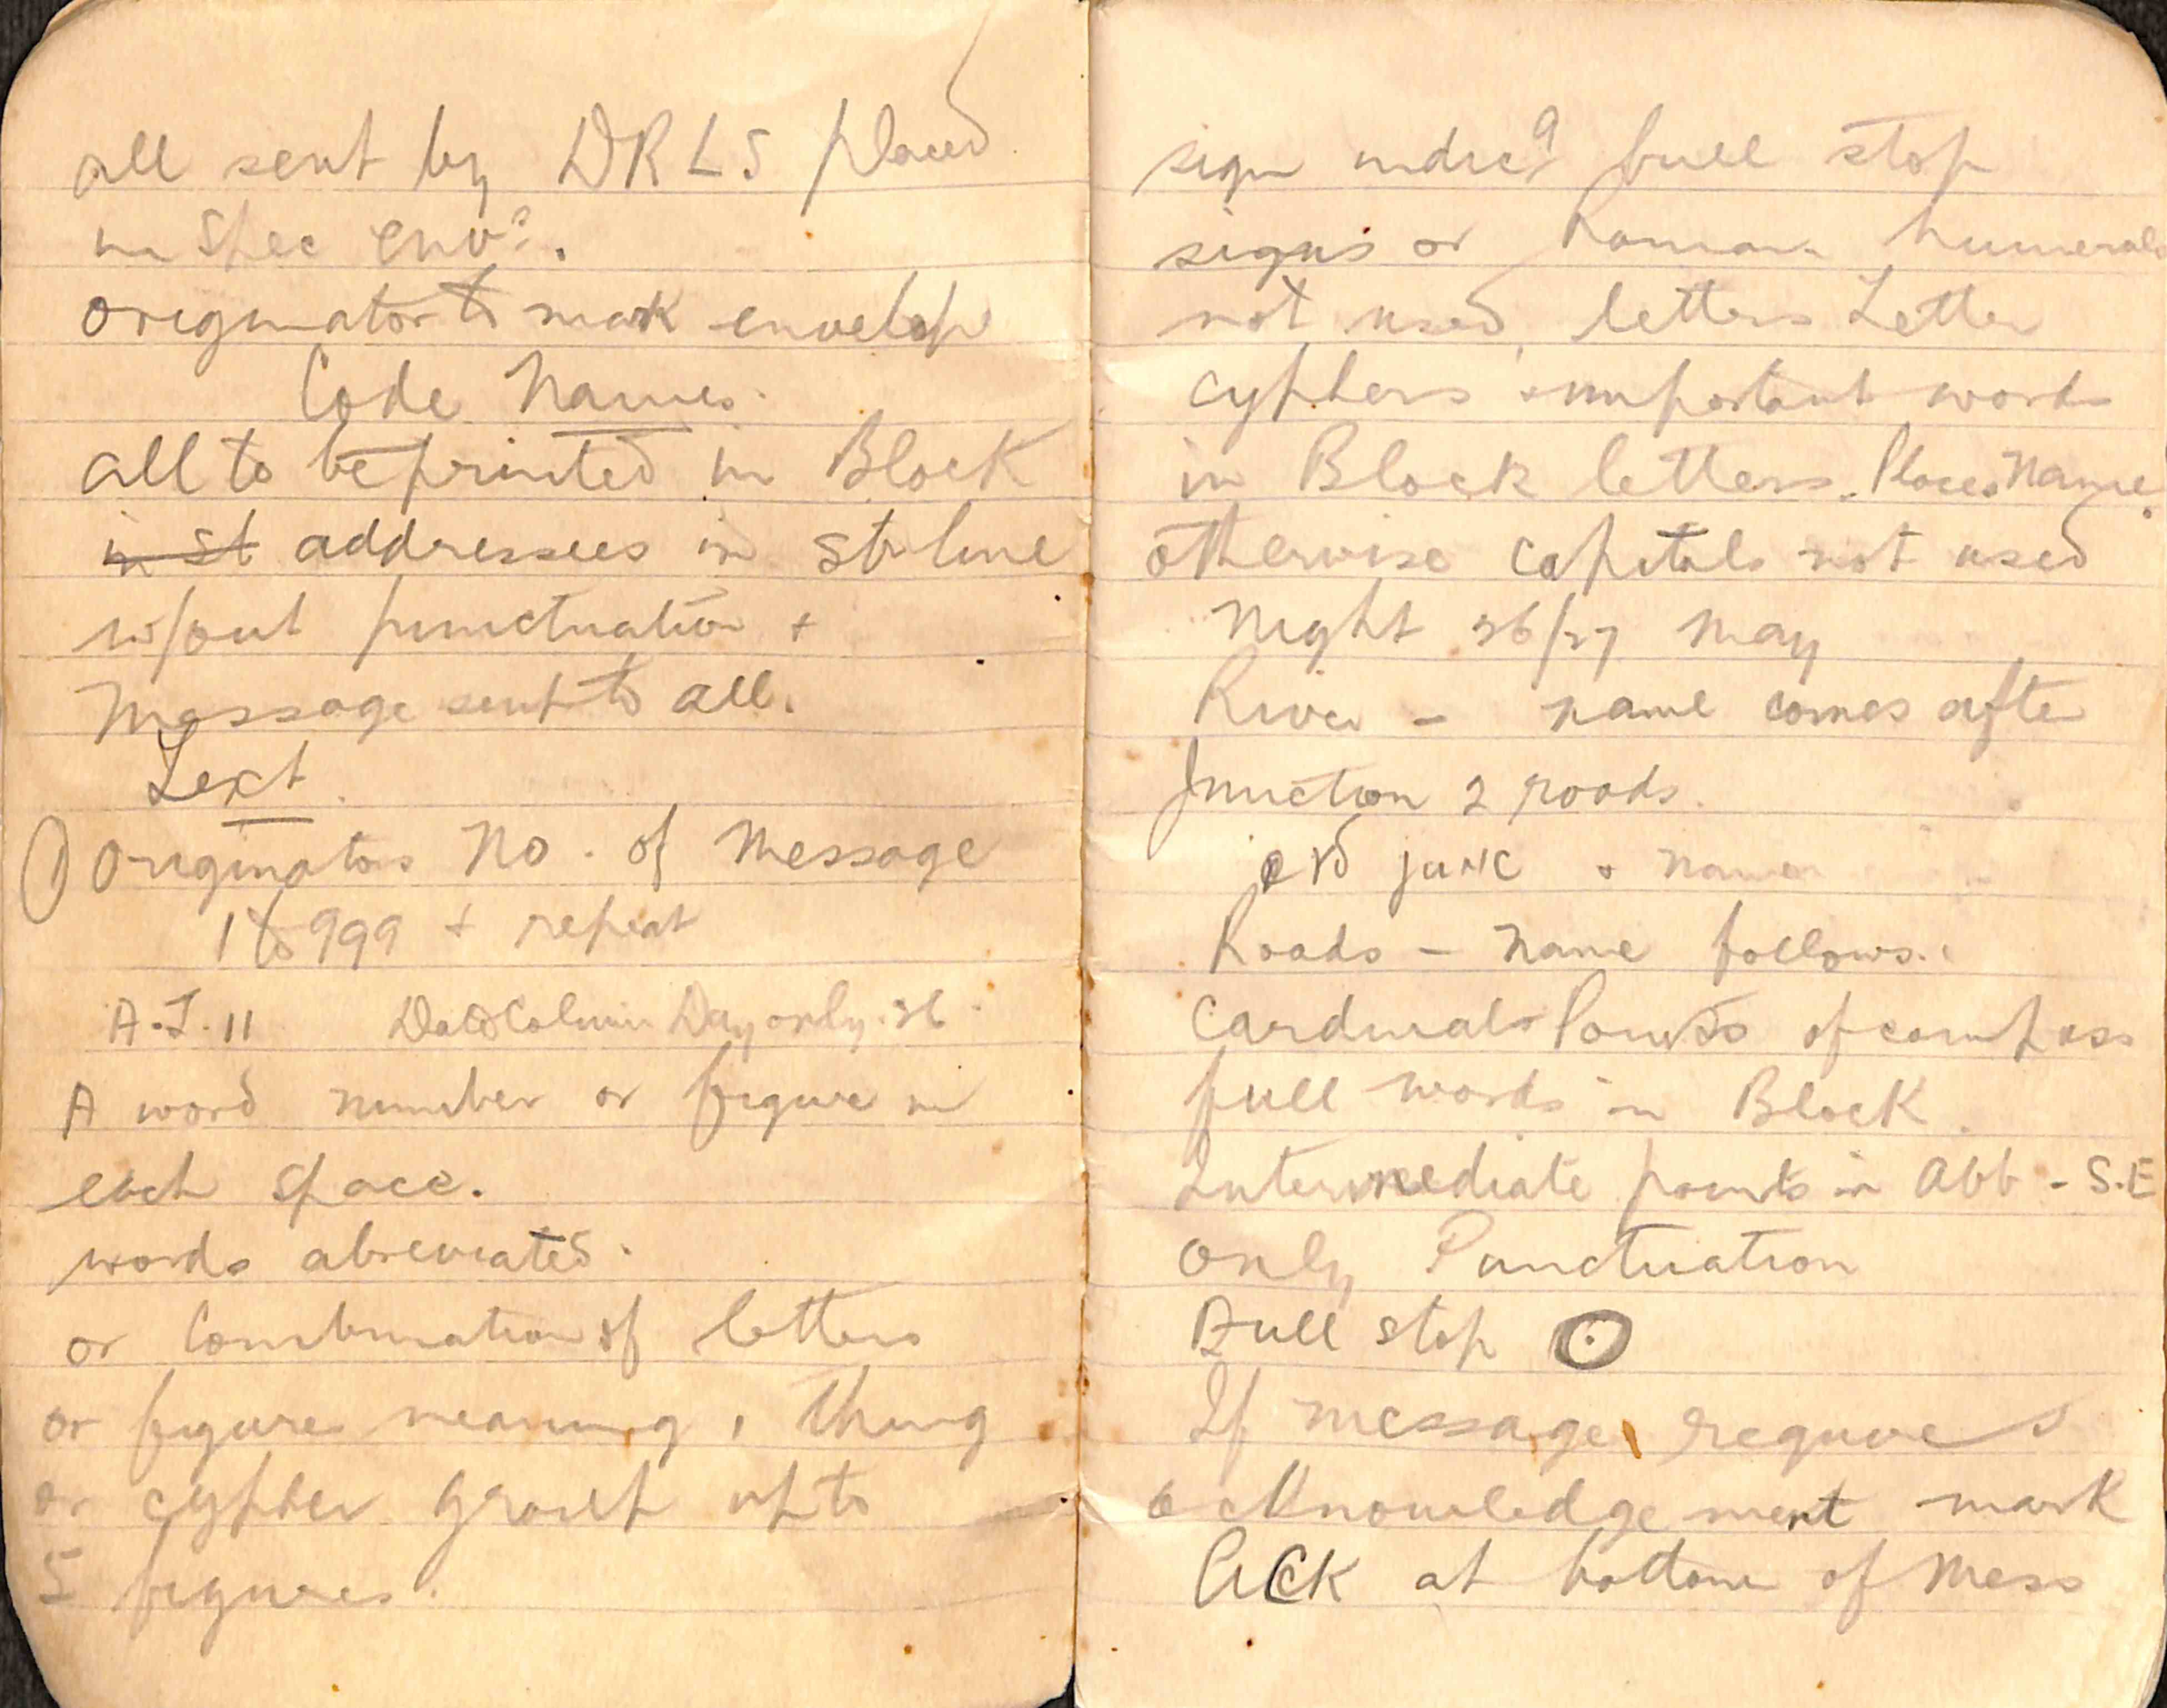 all sent by DRLS placed
in Spec env?.
originator to mark envelop
Code Names.
all to be printed in Block
in st addressees in st line
w/out punctuation +
Message sent to all.
Text.
① Originators No. of Message
1 to 999 + repeat
A.J.11 Date Column Day only. 26.
A word number or figure in
each space.
words abreviated.
or Combination of letters
or figures meaning 1 thing
or cypher group up to
5 figures.
sign full stop
signs or Roman numerals
not used, letters Letter
cyphers + important words
in Block letters. Places Name.
otherwise capitals not used
Night 26/27 May
River - name comes after
Junction 2 roads.
rd junc + name
Roads - name follows.
Cardinals Points of compass
full words in Block.
Intermediate points in abb - S.E
only Punctuation
Full stop ⊙
If message requires
acknowledgement mark
ACK at bottom of Mess